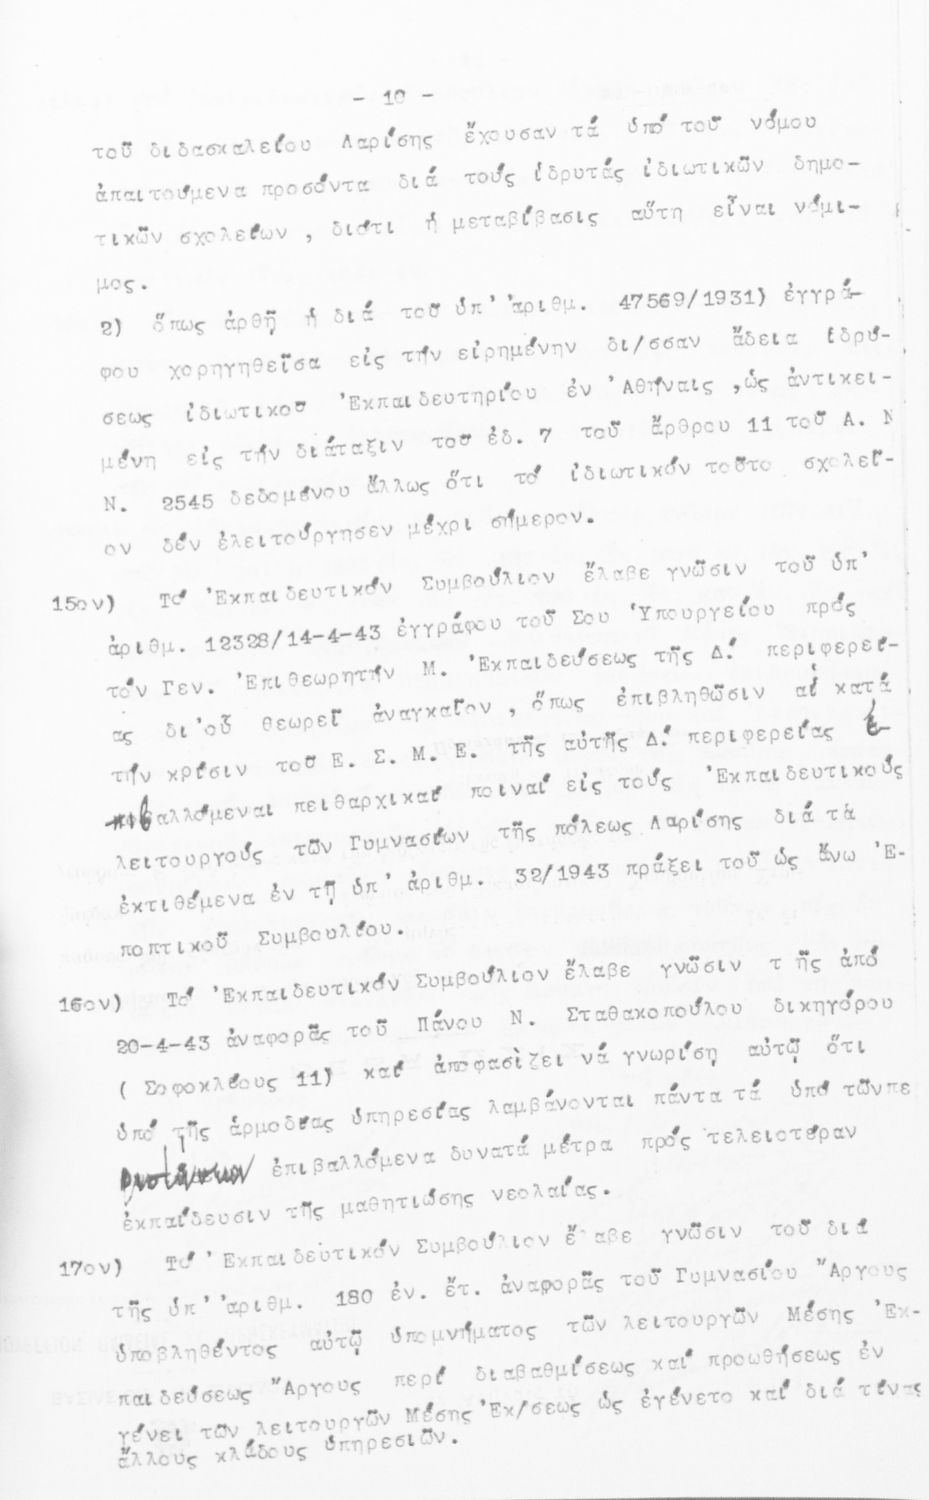 - 10 -
τοῦ διδασκαλείου Λαρίσης ἔχουσαν τά ὑπό τοῦ νόμου
ἀπαιτούμενα προσόντα διά τούς ἱδρυτάς ἰδιωτικῶν δημο-
τικῶν σχολείων , διότι ἡ μεταβίβασις αὕτη εἶναι νόμι-
μος.
2) ὅπως ἀρθῇ ἡ διά τοῦ ὑπ' ἀριθμ. 47569/1931) ἐγγρά-
φου χορηγηθεῖσα εἰς τήν εἰρημένην δι/σσαν ἄδεια ἱδρύ-
σεως ἰδιωτικοῦ Ἐκπαιδευτηρίου ἐν Ἀθήναις ,ὡς ἀντικει-
μένη εἰς τήν διάταξιν τοῦ ἐδ. 7 τοῦ ἄρθρου 11 τοῦ Α. Ν
Ν. 2545 δεδομένου ἄλλως ὅτι τό ἰδιωτικόν τοῦτο σχολεῖ-
ον δέν ἐλειτούργησεν μέχρι σήμερον.
15ον) Τό Ἐκπαιδευτικόν Συμβούλιον ἔλαβε γνῶσιν τοῦ ὑπ'
ἀριθμ. 12328/14-4-43 ἐγγράφου τοῦ Σου Ὑπουργείου πρός
τόν Γεν. Ἐπιθεωρητήν Μ. Ἐκπαιδεύσεως τῆς Δ! περιφερεί-
ας δι'οὗ θεωρεῖ ἀναγκαῖον , ὅπως ἐπιβληθῶσιν αἱ κατά
τήν κρίσιν τοῦ Ε. Σ. Μ. Ε. τῆς αὐτῆς Δ! περιφερείας ἐ-
πιβαλλόμεναι πειθαρχικαί ποιναί εἰς τούς Ἐκπαιδευτικούς
λειτουργούς τῶν Γυμνασίων τῆς πόλεως Λαρίσης διά τὰ
ἐκτιθέμενα ἐν τῇ ὑπ' ἀριθμ. 32/1943 πράξει τοῦ ὡς ἄνω Ἐ-
ποπτικοῦ Συμβουλίου.
16ον) Τό Ἐκπαιδευτικόν Συμβούλιον ἔλαβε γνῶσιν τ ῆς ἀπό
20-4-43 ἀναφορᾶς τοῦ Πάνου Ν. Σταθακοπούλου δικηγόρου
( Σοφοκλέους 11) καί ἀποφασὶζει νά γνωρίσῃ αὐτῷ ὅτι
ὑπό τῆς ἁρμοδίας ὑπηρεσίας λαμβάνονται πάντα τά ὑπό τῶνπε
ριστάσεων ἐπιβαλλόμενα δυνατά μέτρα πρός τελειοτέραν
ἐκπαίδευσιν τῆς μαθητιώσης νεολαίας.
17ον) Τό Ἐκπαιδευτικόν Συμβούλιον ἔλαβε γνῶσιν τοῦ διά
τῆς ὑπ' ἀριθμ. 180 ἐν. ἔτ. ἀναφορᾶς τοῦ Γυμνασίου Ἄργους
ὑποβληθέντος αὐτῷ ὑπομνήματος τῶν λειτουργῶν Μέσης Ἐκ-
παιδεύσεως Ἄργους περί διαβαθμίσεως καί προωθήσεως ἐν
γένει τῶν λειτουργῶν Μέσης Ἐκ/σεως ὡς ἐγένετο καί διά τινας
ἄλλους κλάδους ὑπηρεσιῶν.